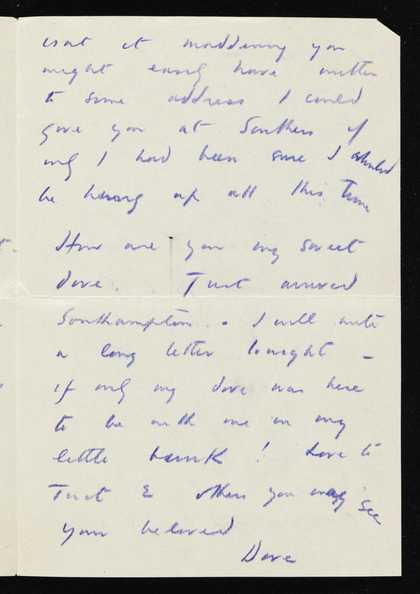 isnt it maddening you
might easily have written
to some address I could
gave you at Southern if
only I had been sure I should
be hung up all this Time
How are you my sweet
dove. Just arrived
Southampton. I will write
a long letter tonight –
if only my dove was here
to be with me in my
little bunk! Love to
& others you may see
your beloved
Dove